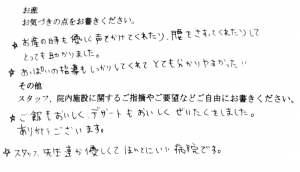 お産
お気づきの点をお書きください。
☆お産の時も優しく声をかけてくれたり、腰をさすってくれたりして
とっても助かりました。
☆おっぱいの指導もしっかりしてくれてとても分かりやすかった!!
その他
スタッフ、院内施設に関するご指摘やご要望などご自由にお書きください。
☆ご飯もおいしく、デザートもおいしくぜいたくをしました。
ありがとうございます。
☆スタッフ、先生達が優しくてほんとにいい病院です。